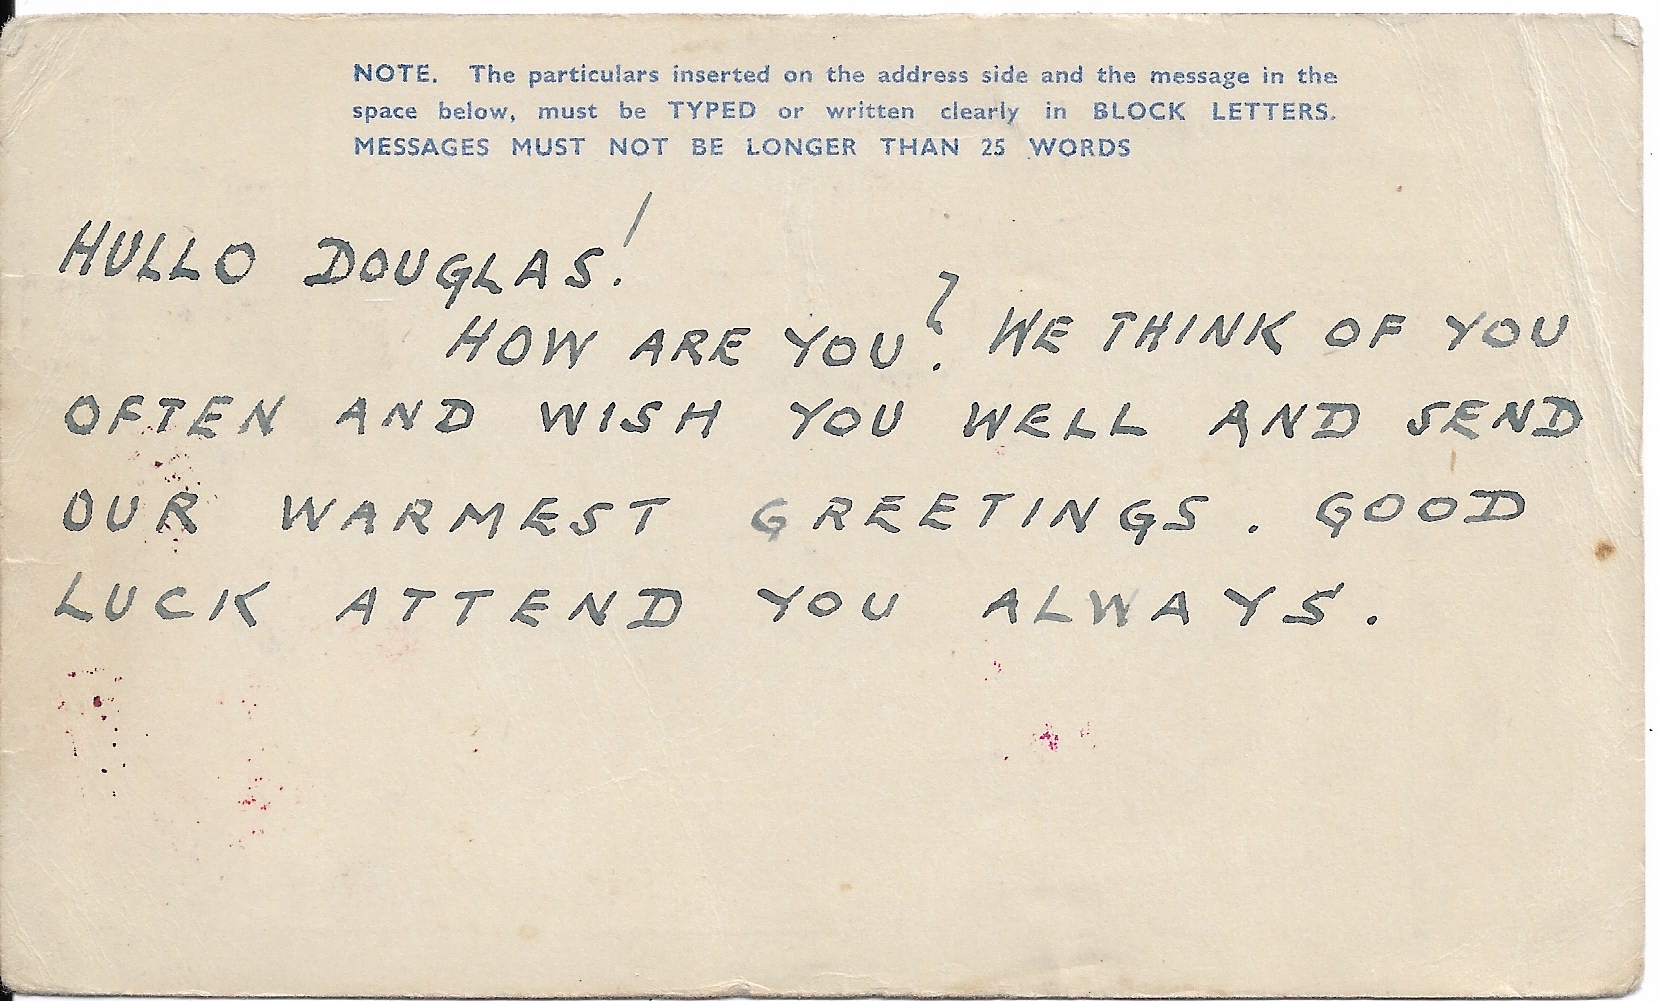 NOTE. The particulars inserted on the address side and the message in the
space below, must be TYPED or written clearly in BLOCK LETTERS.
MESSAGES MUST NOT BE LONGER THAN 25 WORDS
HULLO DOUGLAS!
HOW ARE YOU? WE THINK OF YOU
OFTEN AND WISH YOU WELL AND SEND
OUR WARMEST GREETINGS. GOOD
LUCK ATTEND YOU ALWAYS.